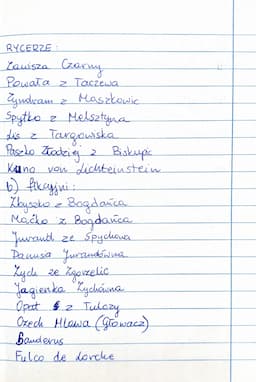 RYCERZE:
Zawisza Czarny
Powała z Taczewa
Zyndram z Maszkowic
Spytko z Melsztyna
Lis z Targowiska
Paszko Złodziej z Biskupic
Kuno von Lichtenstein
b) fikcyjni:
Zbyszko z Bogdańca
Maćko z Bogdańca
Jurand ze Spychowa
Danusa Jurandówna
Zych ze Zgorzelic
Jagienka Zychówna
Opat z Tulczy
Czech Hlawa (Głowacz)
Sanderus
Fulco de Lorche